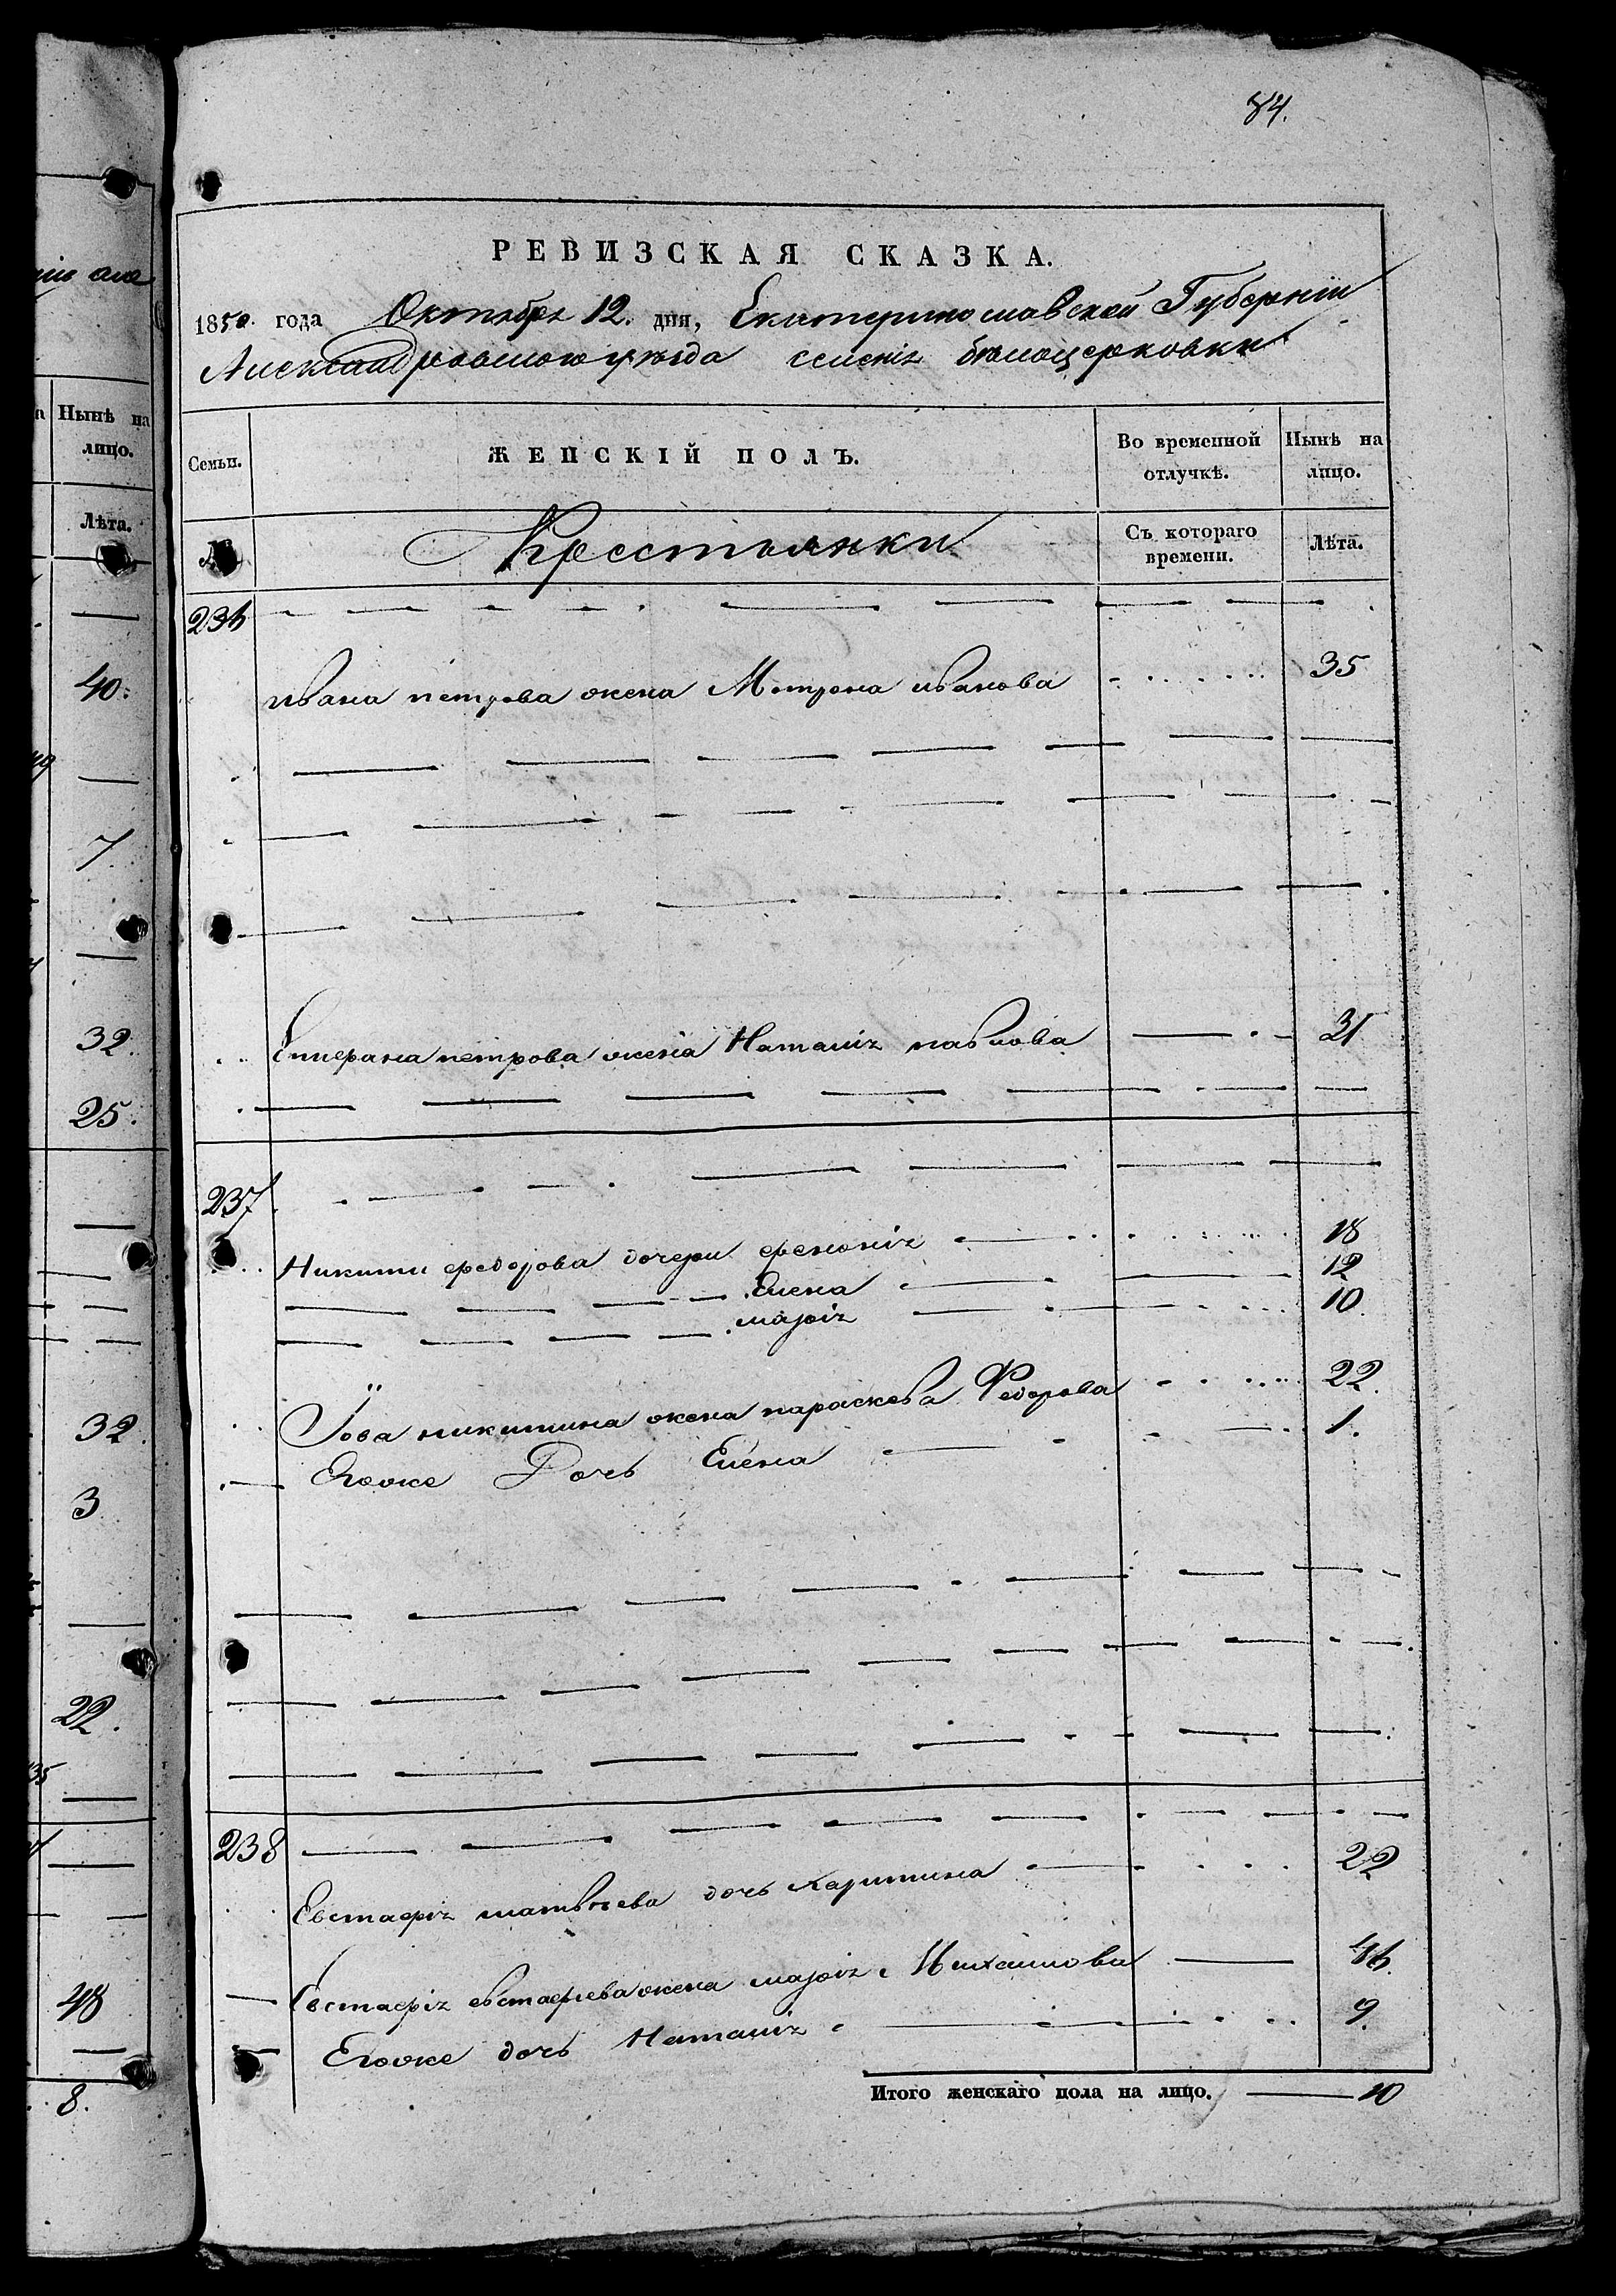 84.
РЕВИЗСКАЯ СКАЗКА.
1850. года Октября 12. дня, Екатеринославской Губерніи
Александровского уѣзда селенія бѣлоцерковки
Семьи.
ЖЕНСКІЙ ПОЛЪ.
Во временной отлучкѣ.
Нынѣ на лицо.
№
Крестьянки
Съ котораго времени.
Лѣта.
236
ивана петрова жена Мотрона иванова 35
петрова жена Наталия павлова 31
237
Никиты федорова дочери феконія 18
Елена 12
марія 10.
Іова никитина жена параскева Федорова 22.
Егоже Дочь Елена 1.
238
Евстафія матвѣева дочь Харитина 22
Евстафія евстафьева жена марія Михаилова 46.
Егоже дочь Наталия 9.
Итого женскаго пола на лицо. 10
ніе але
Нынѣ на лицо.
Лѣта.
40.
7.
32.
25.
32.
3
22.
35
48
8.